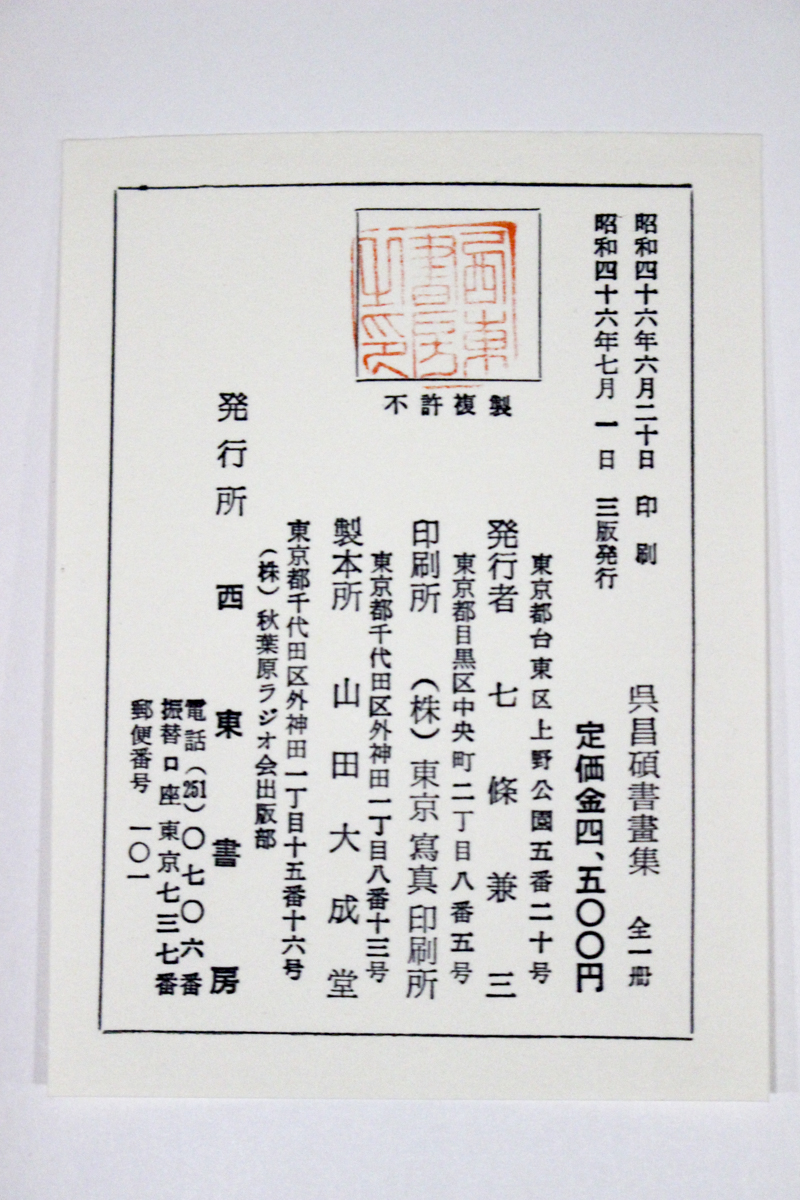 昭和四十六年六月二十日　印　刷
昭和四十六年七月　一日　三版発行
西東書房之印
不許複製
呉昌碩書畫集　全一冊
定価金四、五〇〇円
東京都台東区上野公園五番二十号
発行者　七條兼三
東京都目黒区中央町二丁目八番五号
印刷所　（株）東京寫真印刷所
東京都千代田区外神田一丁目八番十三号
製本所　山田大成堂
東京都千代田区外神田一丁目十五番十六号
（株）秋葉原ラジオ会出版部
発行所　西東書房
電話（251）〇七〇六番
振替口座東京七三七番
郵便番号　一〇一